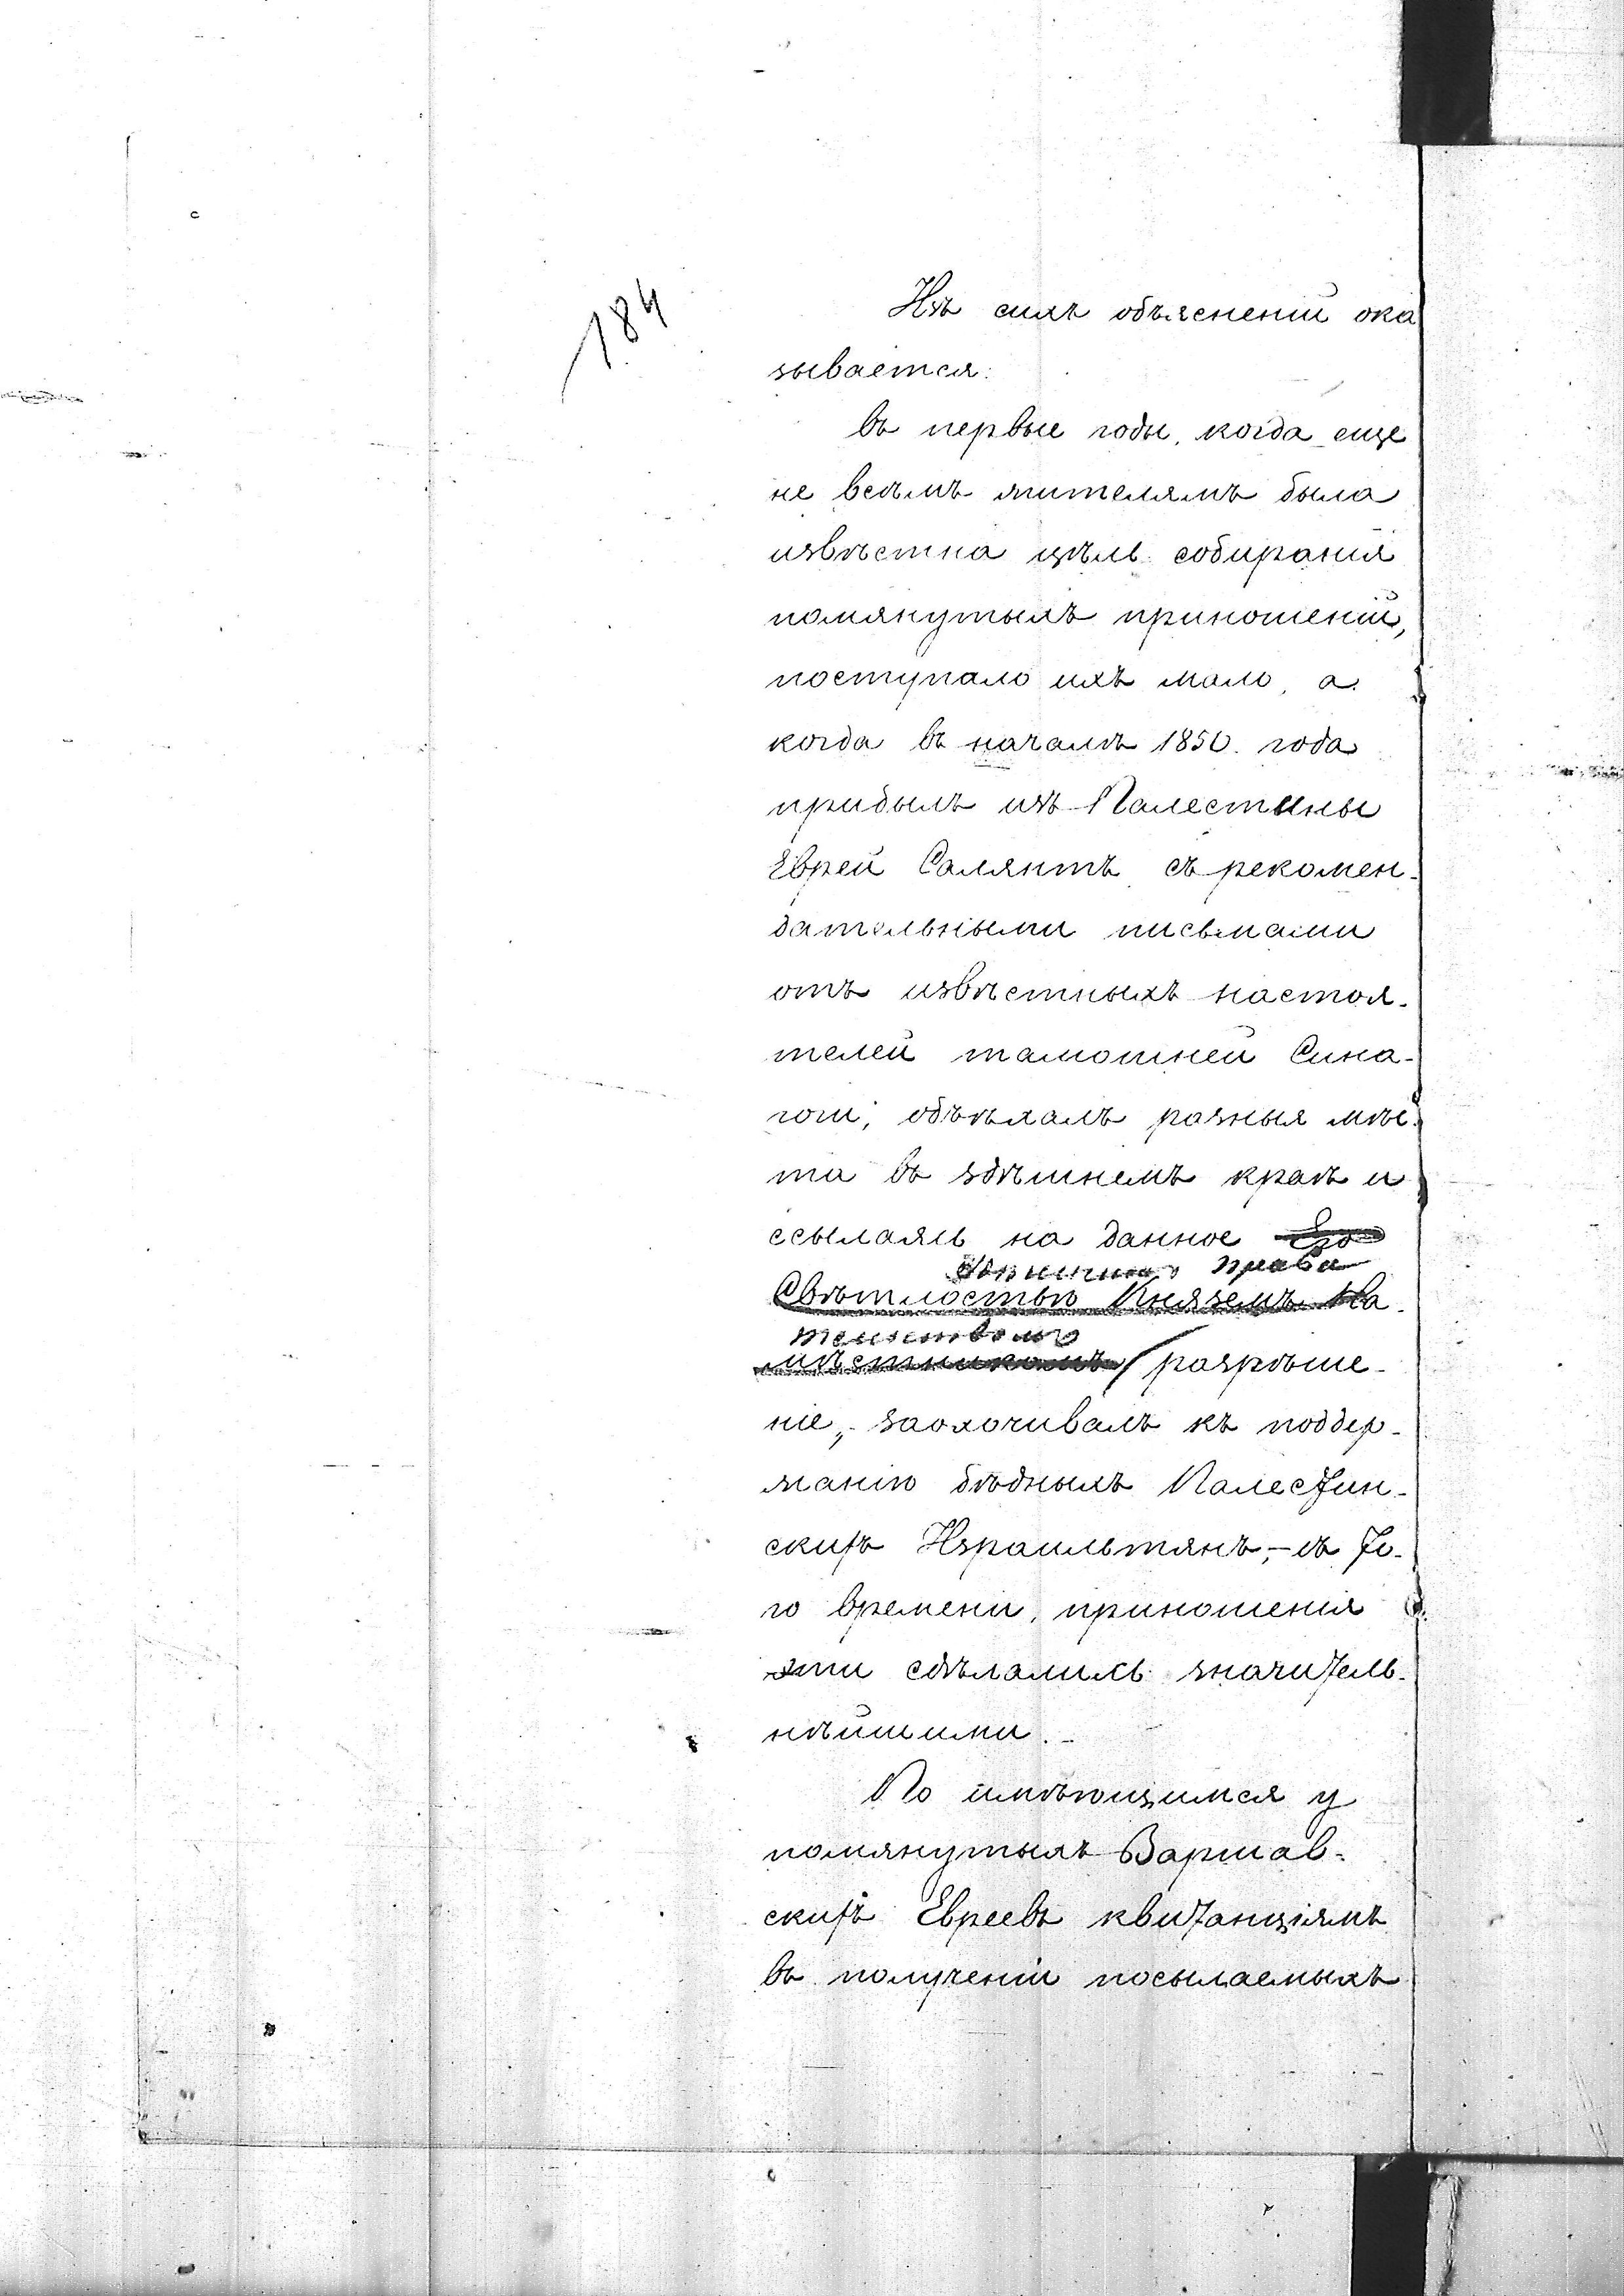 184
Изъ сихъ объясненій ока
зывается:
въ первые годы, когда еще
не всѣмъ жителямъ была
извѣстна цѣль собиранія
помянутыхъ приношеній,
поступало ихъ мало, а
когда въ началѣ 1850. года
прибылъ изъ Палестины
Еврей Салянтъ съ рекомен-
дательными письмами
отъ извѣстныхъ настоя-
телей тамошней Сина-
гоги, объѣхалъ разныя мѣс-
та въ здѣшнемъ краѣ и
ссылаясь на данное Его
права
Свѣтлостью Княземъ На-
тельствомъ
мѣстникомъ разрѣше-
ніе, заохочивалъ къ поддер-
жанію бѣдныхъ Палестин-
скихъ Израильтянъ,- съ то-
го времени, приношенія
эти сдѣлались значитель-
нѣйшими.
По имѣющимся у
помянутыхъ Варшав-
скихъ Евреевъ квитанціямъ
въ полученіи посылаемыхъ